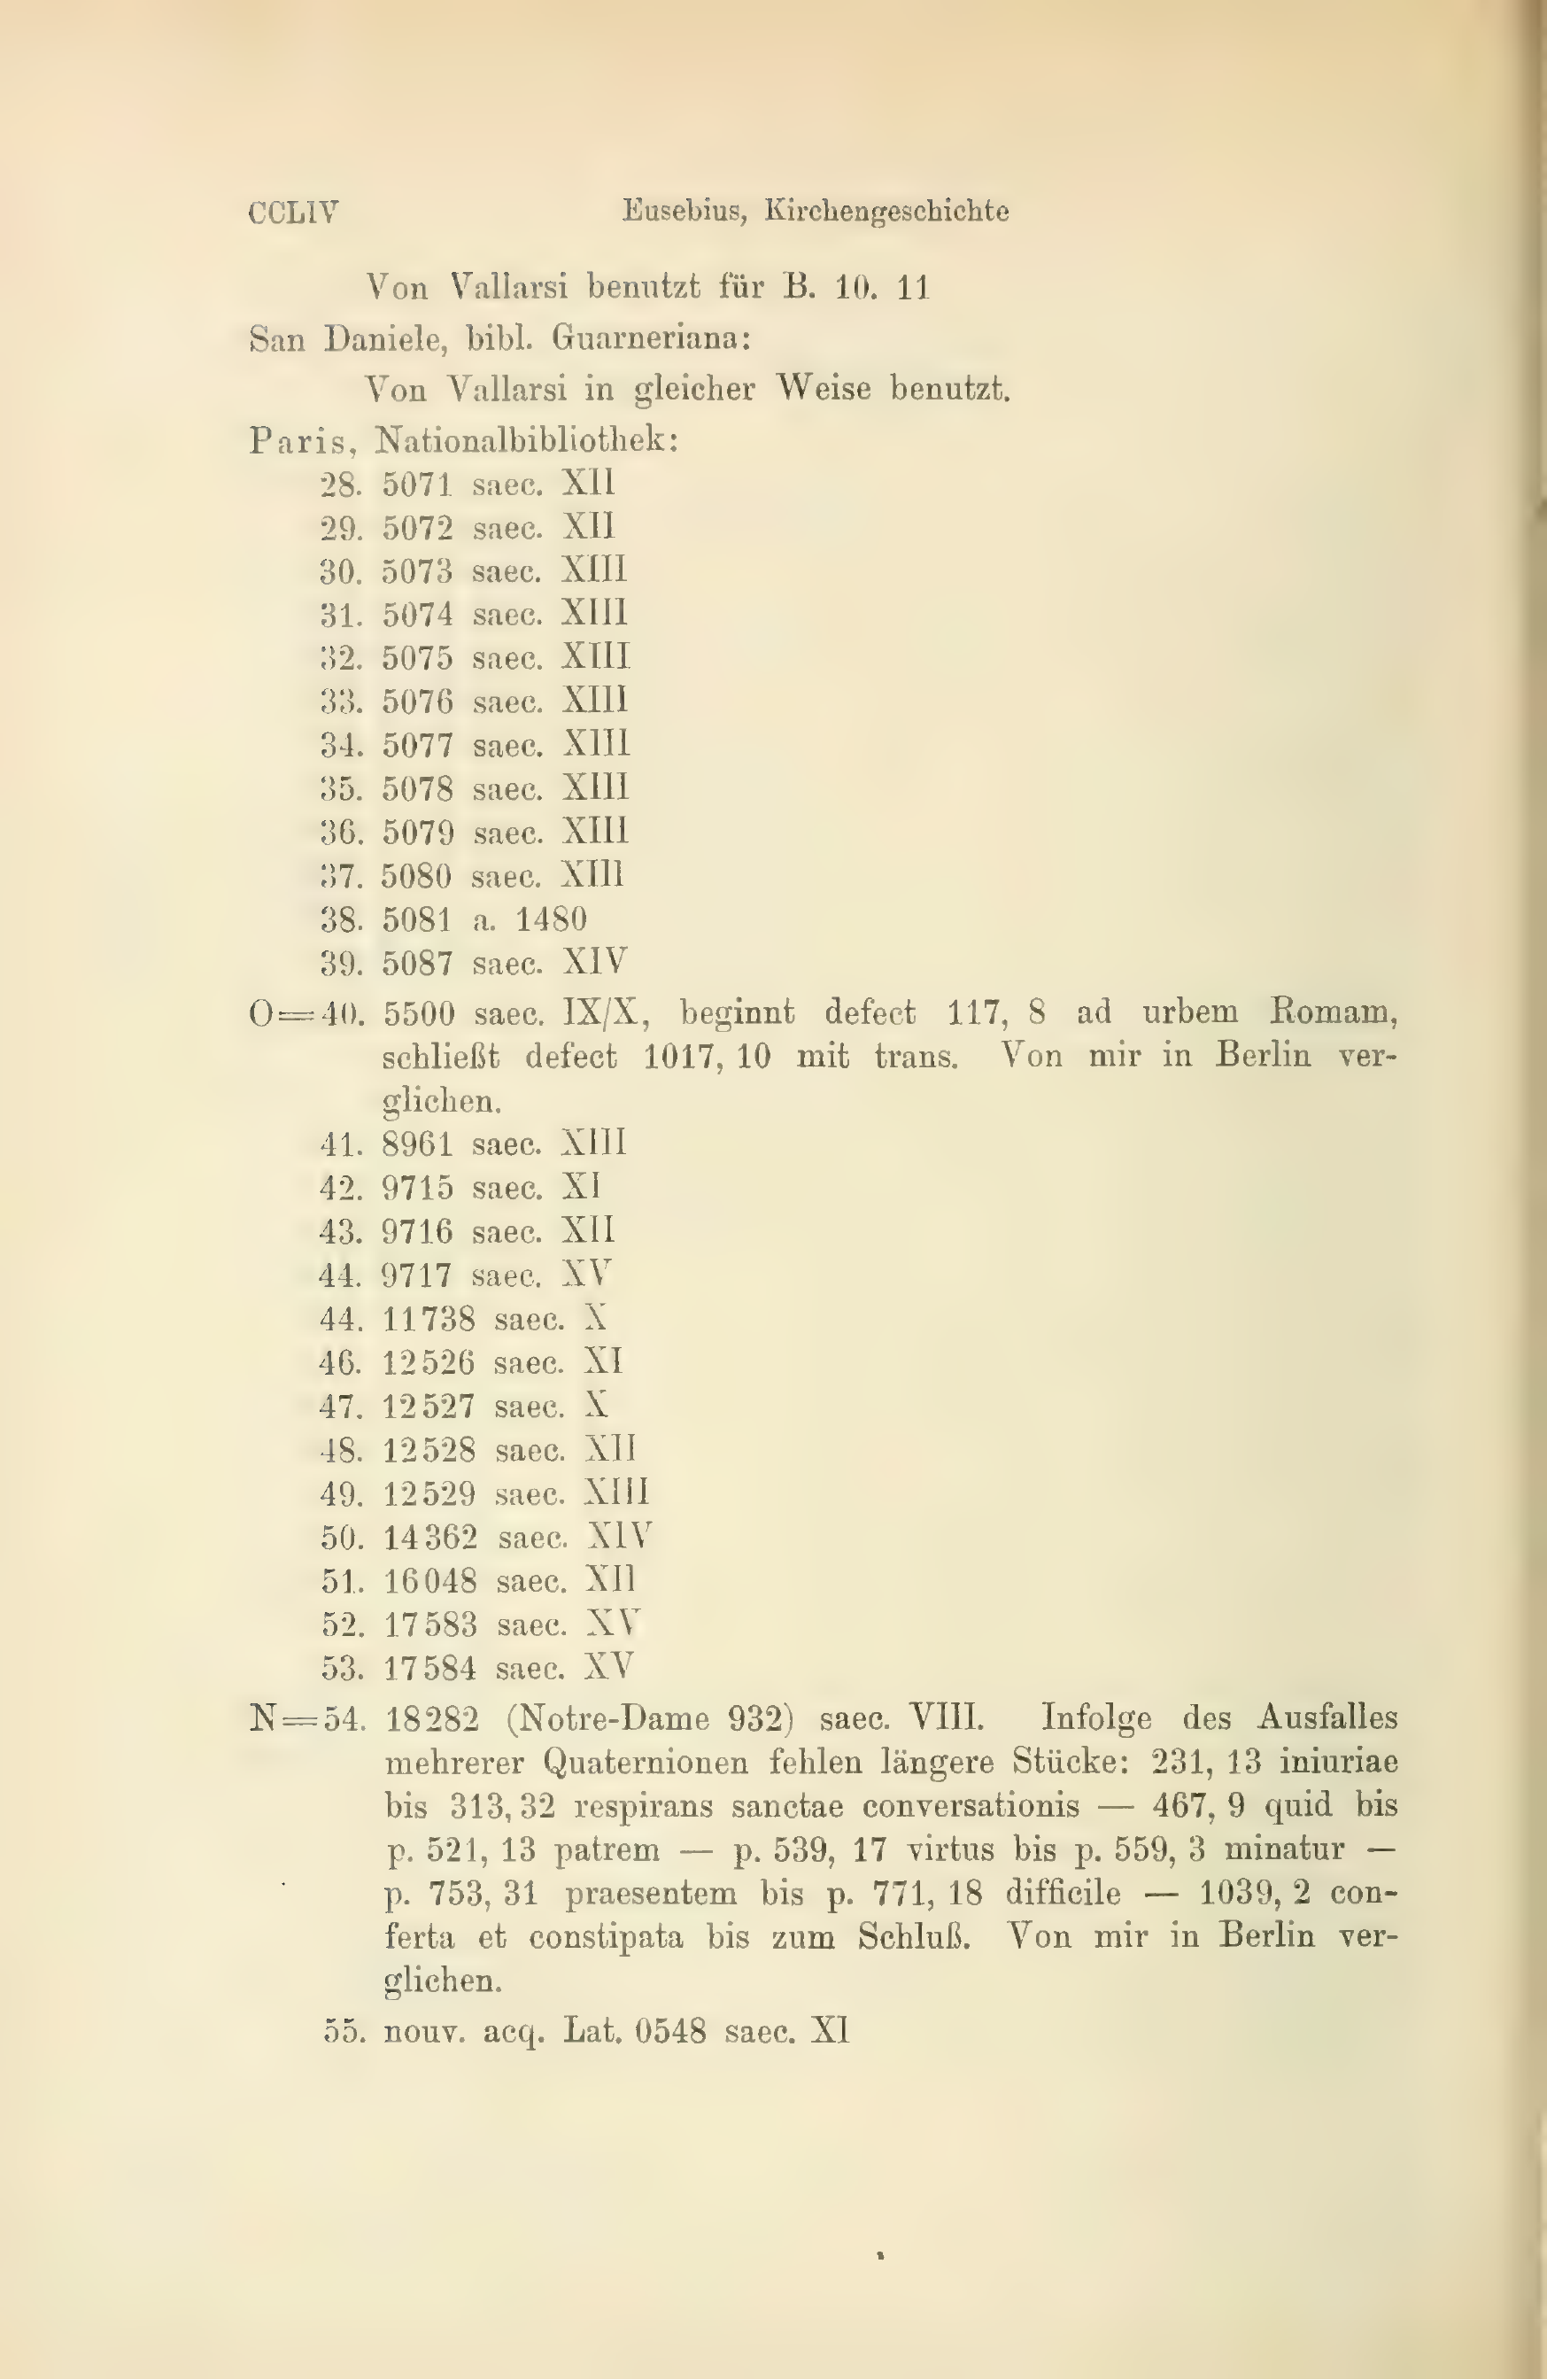 CCLIV Eusebius, Kirchengeschichte
Von Vallarsi benutzt für B. 10. 11
San Daniele, bibl. Guarneriana:
Von Vallarsi in gleicher Weise benutzt.
Paris, Nationalbibliothek:
28. 5071 saec. XII
29. 5072 saec. XII
30. 5073 saec. XIII
31. 5074 saec. XIII
32. 5075 saec. XIII
33. 5076 saec. XIII
34. 5077 saec. XIII
35. 5078 saec. XIII
36. 5079 saec. XIII
37. 5080 saec. XIII
38. 5081 a. 1480
39. 5087 saec. XIV
O=40. 5500 saec. IX/X, beginnt defect 117, 8 ad urbem Romam,
schließt defect 1017, 10 mit trans. Von mir in Berlin ver-
glichen.
41. 8961 saec. XIII
42. 9715 saec. XI
43. 9716 saec. XII
44. 9717 saec. XV
44. 11738 saec. X
46. 12526 saec. XI
47. 12527 saec. X
48. 12528 saec. XII
49. 12529 saec. XIII
50. 14362 saec. XIV
51. 16048 saec. XII
52. 17583 saec. XV
53. 17584 saec. XV
N=54. 18282 (Notre-Dame 932) saec. VIII. Infolge des Ausfalles
mehrerer Quaternionen fehlen längere Stücke: 231, 13 iniuriae
bis 313, 32 respirans sanctae conversationis — 467, 9 quid bis
p. 521, 13 patrem — p. 539, 17 virtus bis p. 559, 3 minatur —
p. 753, 31 praesentem bis p. 771, 18 difficile — 1039, 2 con-
ferta et constipata bis zum Schluß. Von mir in Berlin ver-
glichen.
55. nouv. acq. Lat. 0548 saec. XI